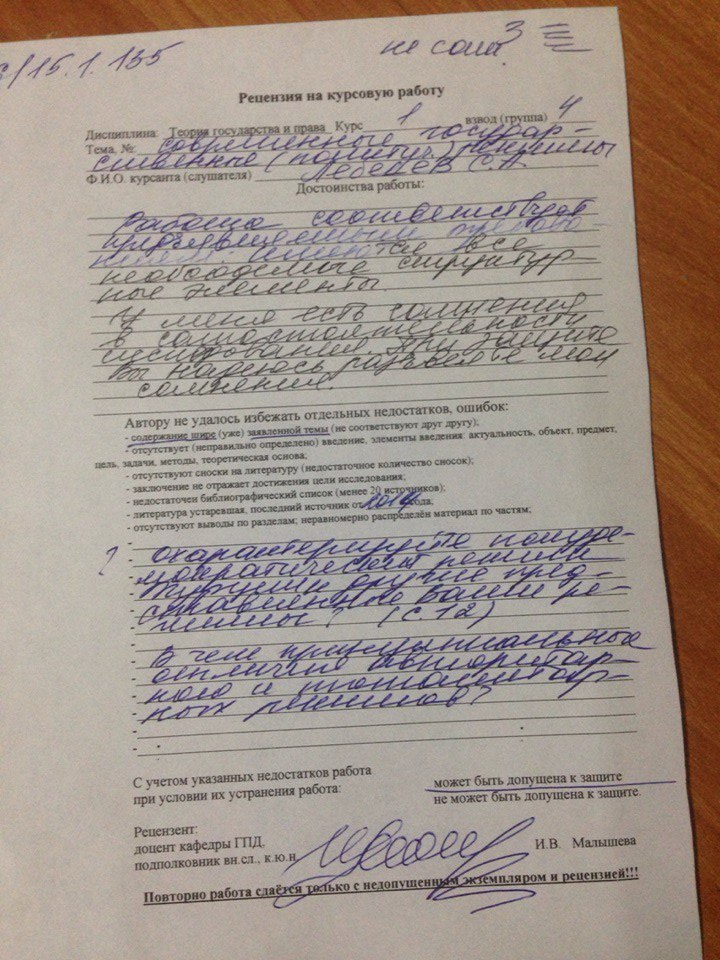 /15.1.135
не сам.
3
Рецензия на курсовую работу
Дисциплина Теория государства и права Курс 1 взвод (группа) 4
Тема, №: современные государ-
ственные (политич.) режимы
Ф.И.О. курсанта (слушателя) Лебедев С.А.
Достоинства работы:
Работа соответствует
предъявляемым требова-
ниям. имеются все
необходимые структур-
ные элементы
У меня есть сомнения
в самостоятельности
исследования. При защите
Вы надеюсь развеете мои
сомнения.
Автору не удалось избежать отдельных недостатков, ошибок:
- содержание шире (уже) заявленной темы (не соответствуют друг другу);
- отсутствует (неправильно определено) введение, элементы введения: актуальность, объект, предмет,
цель, задачи, методы, теоретическая основа;
- отсутствуют сноски на литературу (недостаточное количество сносок);
- заключение не отражает достижения цели исследования;
- недостаточен библиографический список (менее 20 источников);
- литература устаревшая, последний источник от 2014 года.
- отсутствуют выводы по разделам; неравномерно распределён материал по частям;
? охарактеризуйте полуде-
мократический режим
другие пред-
ставленные Вами ре-
жимы? (с. 12)
В чем принципиальные
отличия авторитар-
ного и тоталитар-
ных режимов?
С учетом указанных недостатков работа
при условии их устранения работа:
может быть допущена к защите
не может быть допущена к защите.
Рецензент:
доцент кафедры ГПД,
подполковник вн.сл., к.ю.н.
И.В. Малышева
Повторно работа сдаётся только с недопущенным экземпляром и рецензией!!!